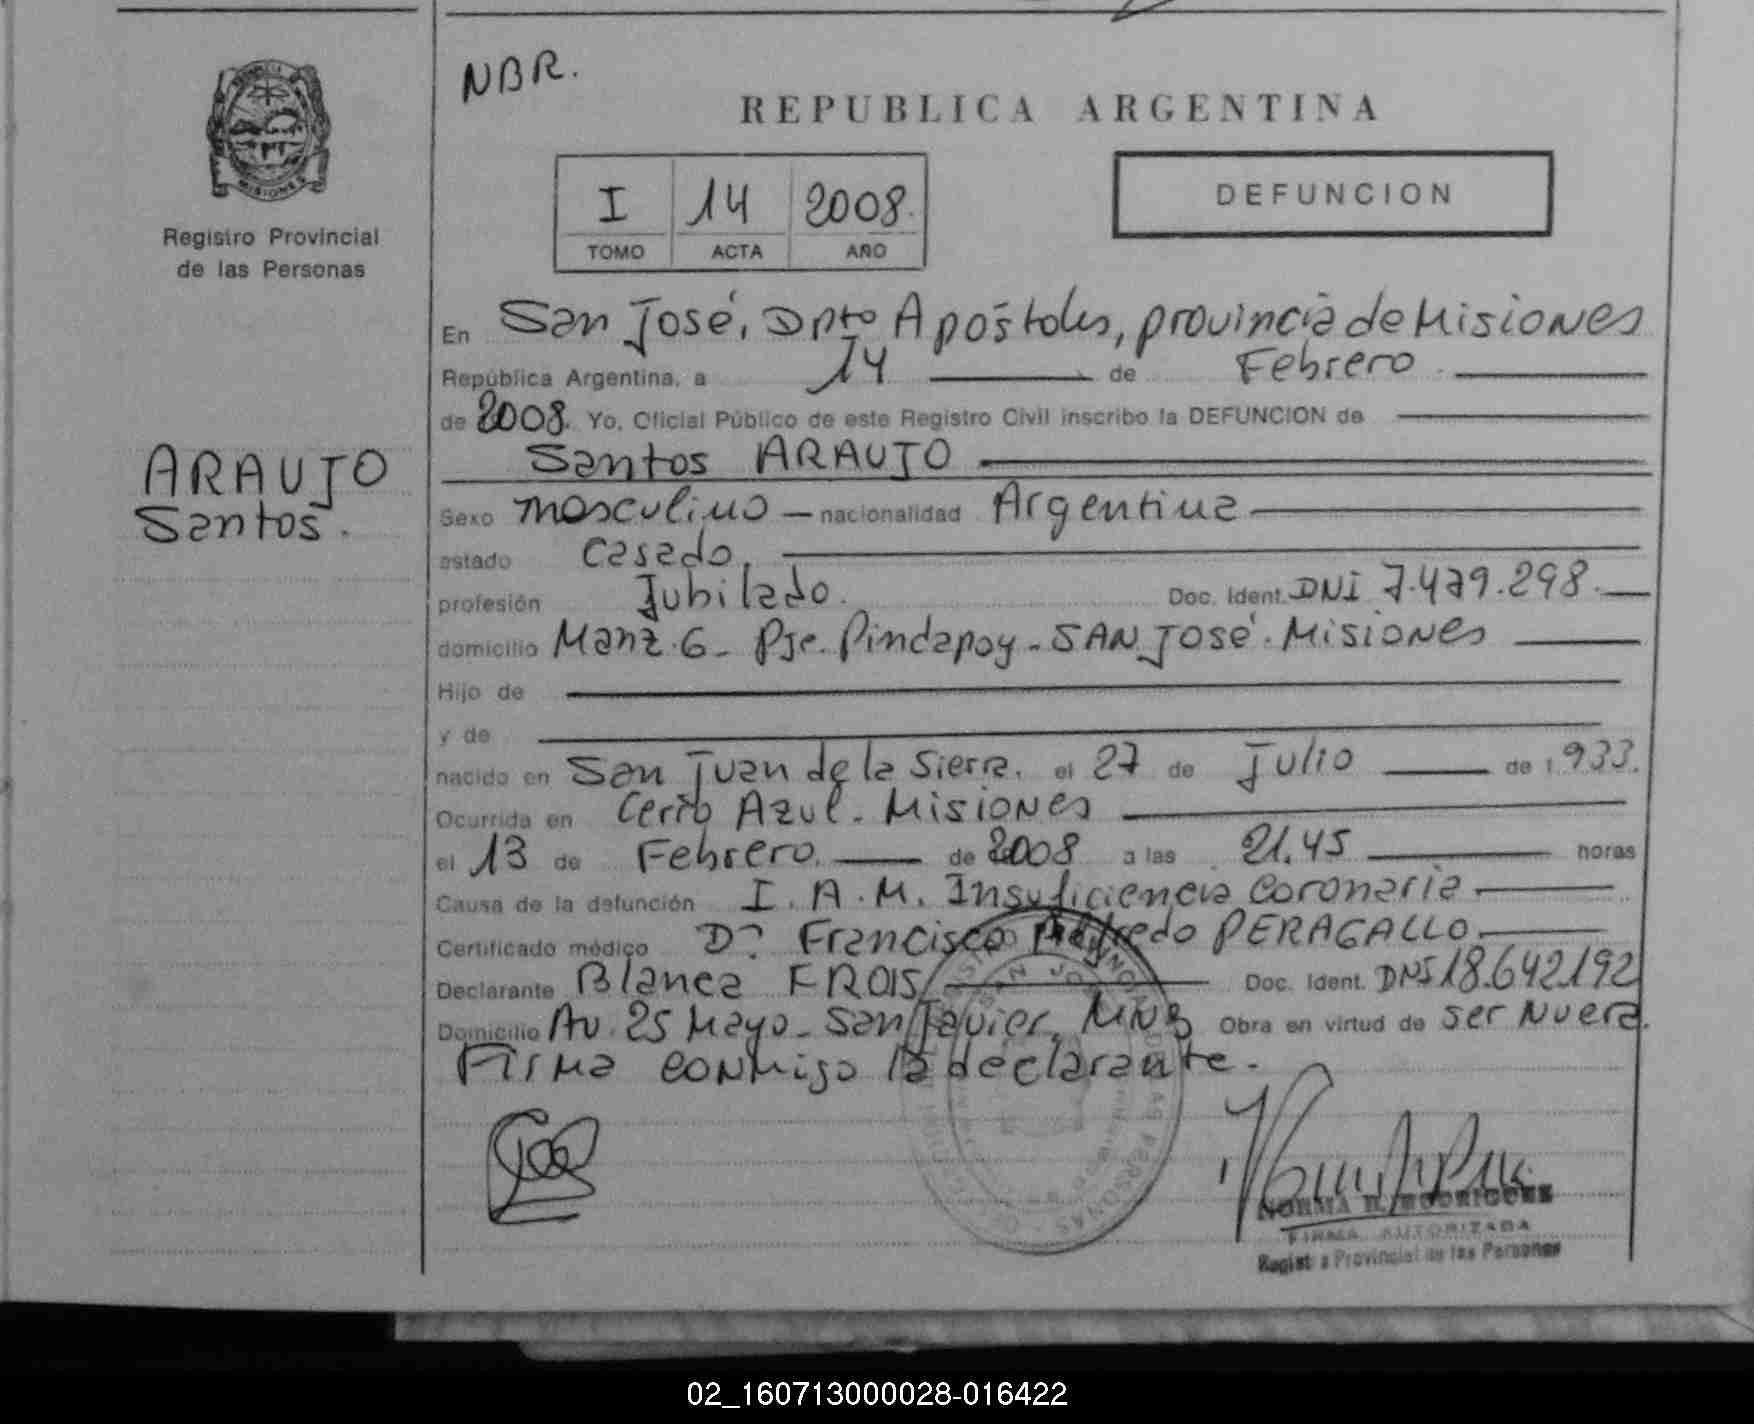 NBR.
REPUBLICA ARGENTINA
PROVINCIA
MISIONES
Registro Provincial
de las Personas
I 14 2008.
TOMO ACTA AÑO
DEFUNCION
ARAUJO
Santos.
En San José, Dpto Apóstoles, provincia de Misiones
República Argentina, a 14 de Febrero
de 2008. Yo, Oficial Público de este Registro Civil inscribo la DEFUNCION de
Santos ARAUJO
Sexo masculino nacionalidad Argentina
estado Casado.
profesión Jubilado. Doc. Ident. DNI 7.479.298.
domicilio Manz. 6 - Pje. Pindapoy - SAN JOSÉ - Misiones
Hijo de
y de
nacido en San Juan de la Sierra, el 27 de Julio de 1.933.
Ocurrida en Cerro Azul - Misiones
el 13 de Febrero de 2008 a las 21.45 horas
Causa de la defunción I. A. M. Insuficiencia Coronaria
Certificado médico Dr. Francisco Alfredo PERAGALLO
Declarante Blanca FROIS Doc. Ident. DNI 18.642.192
Domicilio Av. 25 Mayo - San Javier, Mnes Obra en virtud de ser Nuera.
Firma conmigo la declarante.
NORMA B. RODRIGUEZ
FIRMA AUTORIZADA
Registro Provincial de las Personas
02_160713000028-016422